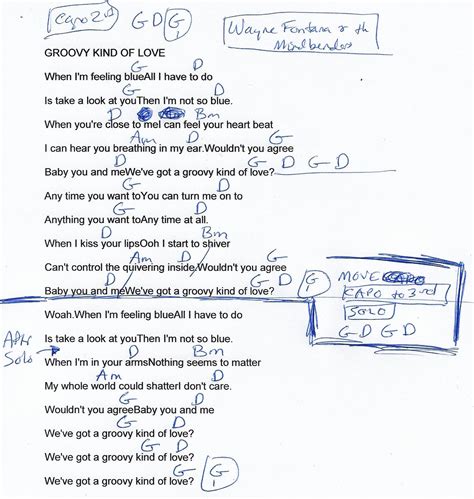 Capo 2nd G D G
Wayne Fontana & the
Mindbenders
GROOVY KIND OF LOVE
G D
When I'm feeling blueAll I have to do
G D
Is take a look at youThen I'm not so blue.
D Bm
When you're close to meI can feel your heart beat
Am D G
I can hear you breathing in my ear.Wouldn't you agree
D G D G D
Baby you and meWe've got a groovy kind of love?
G D
Any time you want toYou can turn me on to
G D
Anything you want toAny time at all.
D Bm
When I kiss your lipsOoh I start to shiver
Am D G
Can't control the quivering inside.Wouldn't you agree
D G D G
Baby you and meWe've got a groovy kind of love?
MOVE
CAPO to 3rd
SOLO
G D G D
Woah.When I'm feeling blueAll I have to do
Is take a look at youThen I'm not so blue.
After
Solo
D Bm
When I'm in your armsNothing seems to matter
Am D
My whole world could shatterI don't care.
G D
Wouldn't you agreeBaby you and me
G D
We've got a groovy kind of love?
G D
We've got a groovy kind of love?
G D G
We've got a groovy kind of love?